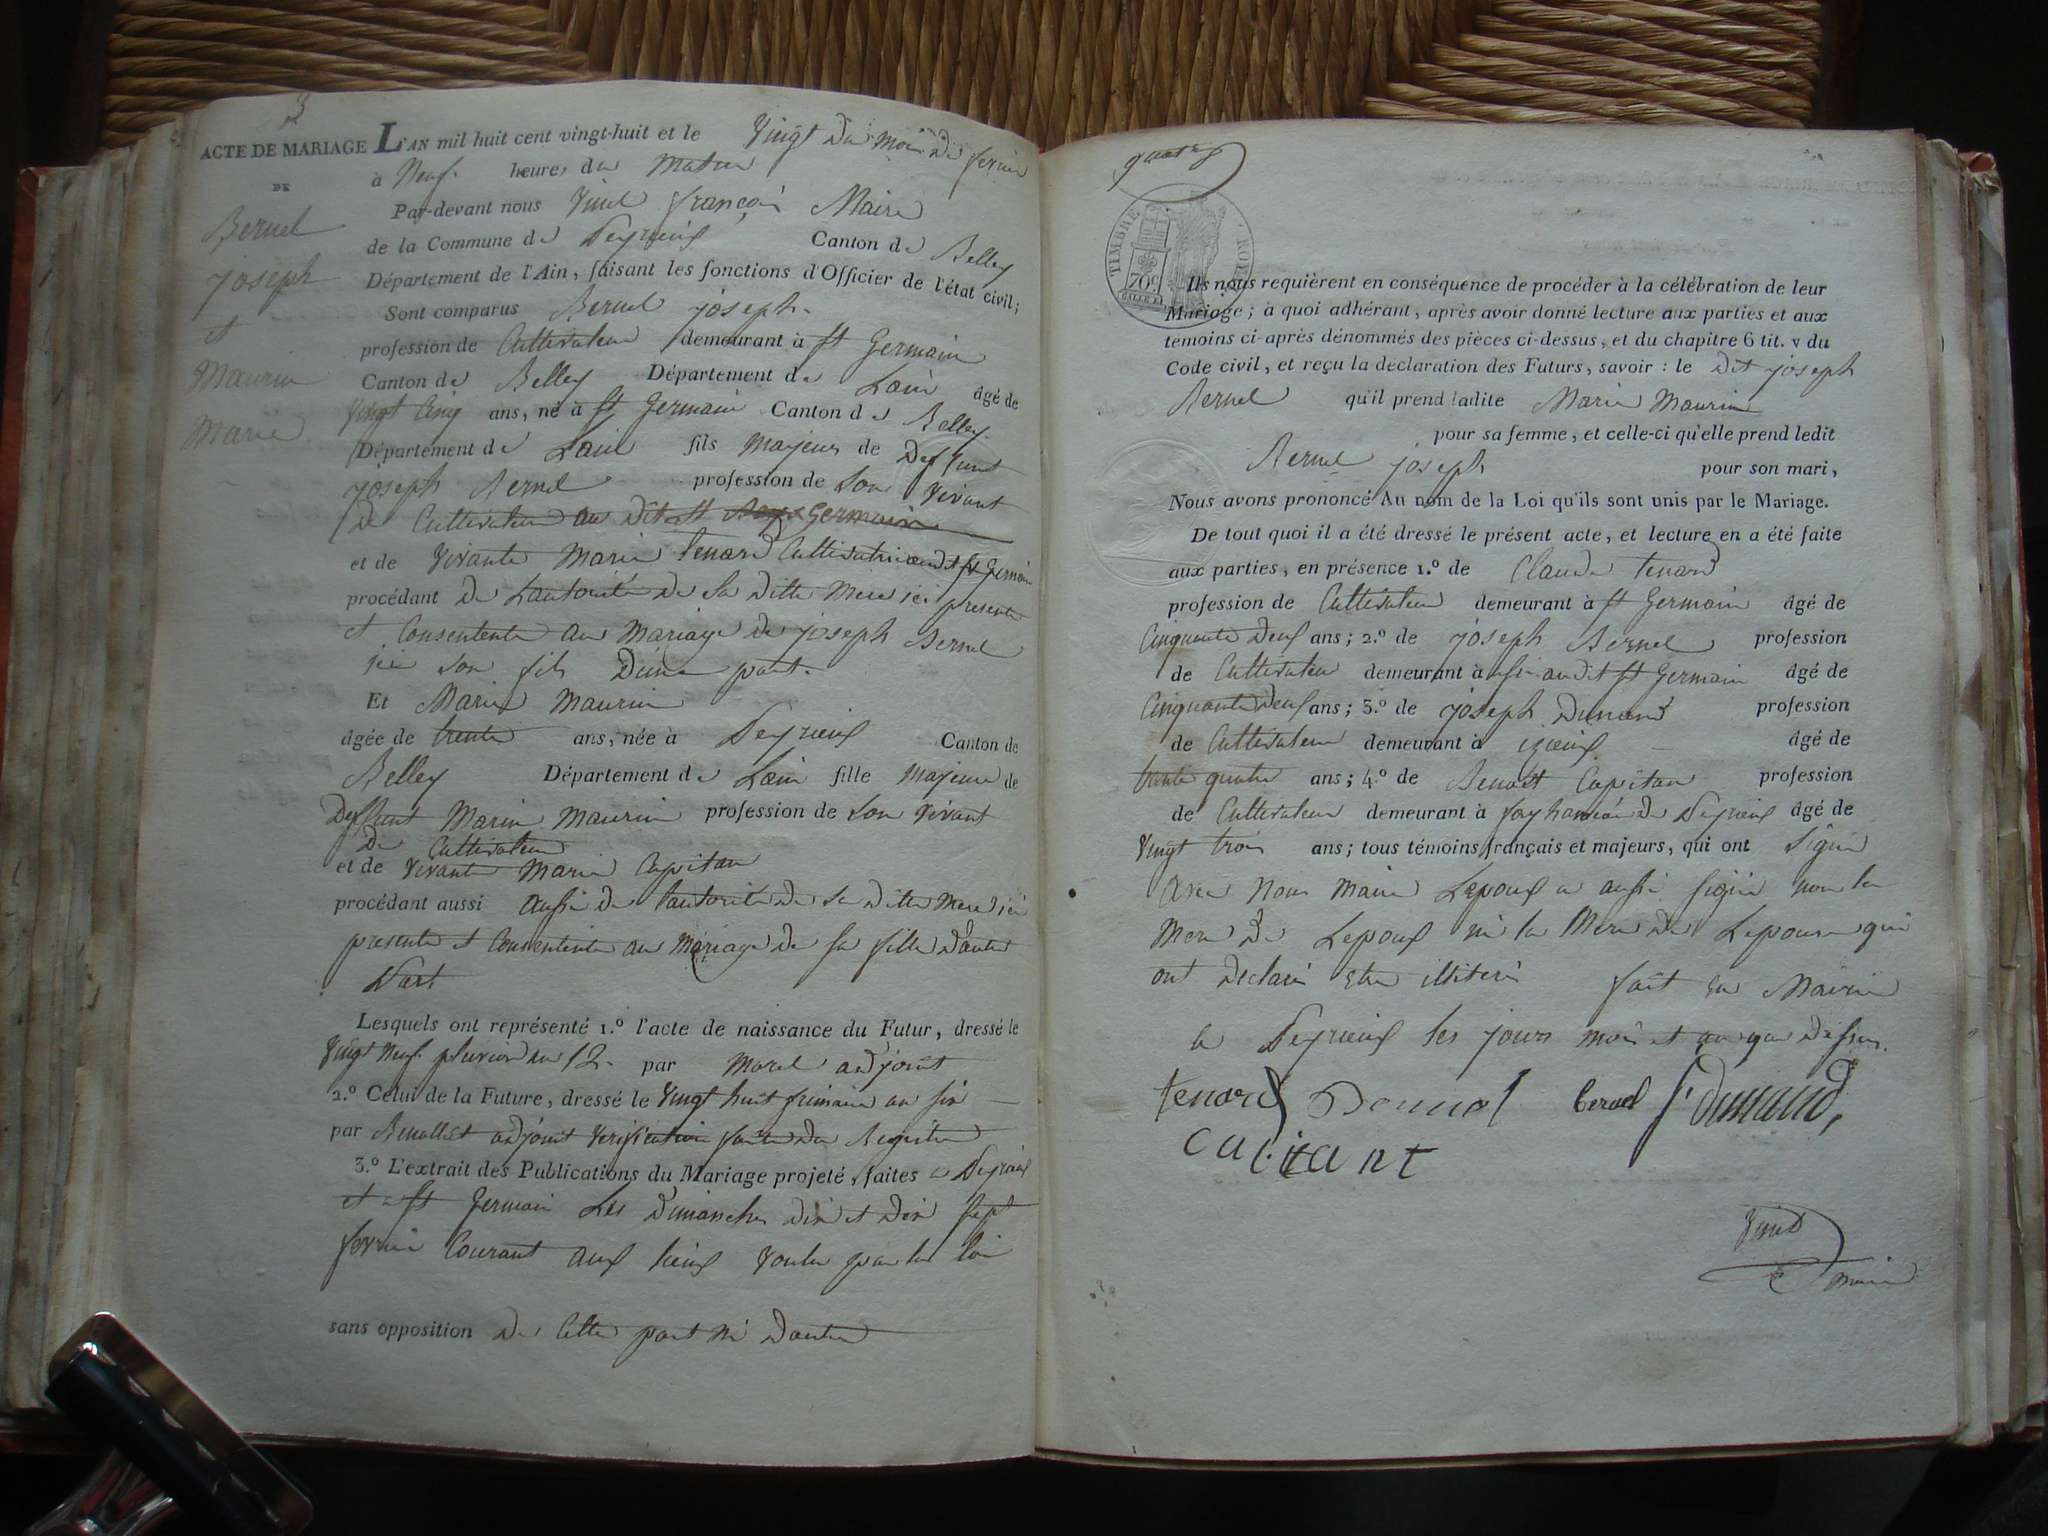 3
ACTE DE MARIAGE
DE
Bernel
joseph
et
Maurin
Marie
L'AN mil huit cent vingt-huit et le vingt du mois de fevrier
à Neuf heures du Matin
Par-devant nous Vinet françois Maire
de la Commune de Peyrieux Canton de Belley
Département de l'Ain, faisant les fonctions d'Officier de l'état civil;
Sont comparus Bernel joseph.
profession de Cultivateur demeurant à St Germain
Canton de Belley Département de Lain âgé de
vingt Cinq ans, né à St Germain Canton de Belley.
Département de Lain fils majeur de Deffunt
joseph Bernel profession de Son vivant
de Cultivateur au Dit St Germain
et de vivante Marie tenard Cultivatrice audit St Germain
procédant de Lautorité de Sa Ditte Mere ici presente
et Consentente au Mariage de joseph Bernel
ici Son fils D'une part.
Et Marie Maurin
âgée de trente ans, née à Peyrieux Canton de
Belley Département de Lain fille Majeure de
Deffunt Marin Maurin profession de Son vivant
De Cultivateur
et de vivante Marie Capitan
procédant aussi aussi de lautorité de Sa Ditte Mere ici
presente et Consentente au Mariage de Sa fille D'autre
Part
Lesquels ont représenté 1.º l'acte de naissance du Futur, dressé le
vingt neuf pluviose an 12. par Morel adjoint
2.º Celui de la Future, dressé le vingt huit frimaire an six
par Benollet adjoint verification faite du Registre
3.º L'extrait des Publications du Mariage projeté, faites a Peyrieux
et a St Germain Les Dimanches Dix et Dix Sept
fevrier Courant aux lieux voulu par la loi
sans opposition De Cette part ni Dautre
quatre
TIMBRE ROYAL
70c
Ils nous requièrent en conséquence de procéder à la célébration de leur
Mariage; à quoi adhérant, après avoir donné lecture aux parties et aux
témoins ci-après dénommés des pièces ci-dessus, et du chapitre 6 tit. v du
Code civil, et reçu la déclaration des Futurs, savoir : le dit joseph
Bernel qu'il prend ladite Marie Maurin
pour sa femme, et celle-ci qu'elle prend ledit
Bernel joseph pour son mari,
Nous avons prononcé Au nom de la Loi qu'ils sont unis par le Mariage.
De tout quoi il a été dressé le présent acte, et lecture en a été faite
aux parties, en présence 1.º de Claude tenard
profession de Cultivateur demeurant à St Germain âgé de
Cinquante Deux ans; 2.º de joseph Bernel profession
de Cultivateur demeurant à audit St Germain âgé de
Cinquante Deux ans; 3.º de joseph Dunand profession
de Cultivateur demeurant à izieux âgé de
trente quatre ans; 4.º de Benoît Capitan profession
de Cultivateur demeurant à de Peyrieux âgé de
vingt trois ans; tous témoins français et majeurs, qui ont Signé
avec Nous maire Lepoux a aussi Signé non la
Mere de Lepoux ni la Mere de Lepouse qui
ont Declaré Etre illiteré fait en Mairie
a Peyrieux les jours mois et an que Dessus.
tenard Bernel bernel j. dunand,
capitant
Vinet
maire